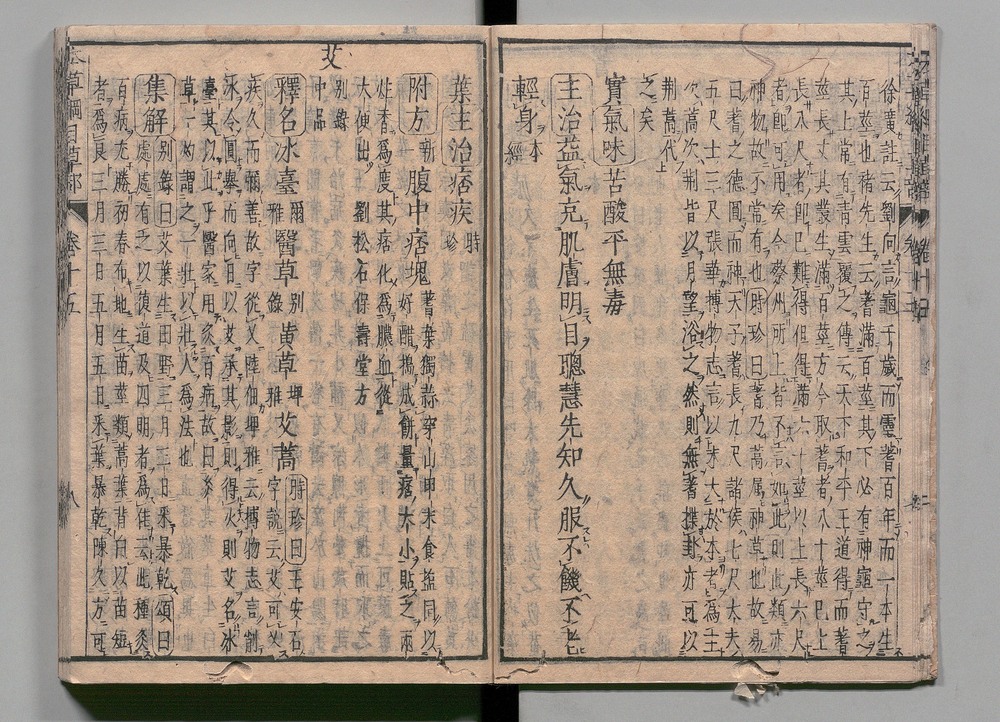 徐廣註云劉向言龜千歲而靈蓍百年而一本生
百莖也褚先生云蓍滿百莖其下必有神龜守之
其上常有青雲覆之傳云天下和平王道得而蓍
莖長丈其叢生滿百莖方今取蓍者八十莖已上
長八尺者卽已難得但得滿六十莖以上長六尺
者卽可用矣今蔡州所上者皆不言如此則此類亦
神物故不常有也時珍曰蓍乃蒿屬神草也故易
曰蓍之德圓而神天子蓍長九尺諸侯七尺大夫
五尺士三尺張華博物志言以末大於本者爲主
次蒿次荆皆以月望浴之然則無蓍揲卦亦可以
荆蒿代
之矣
實氣味苦酸平無毒
主治益氣充肌膚明目聰慧先知久服不饑不老
輕身本
經
葉主治痞疾時
珍
附方新
一腹中痞塊蓍葉獨蒜穿山甲末食鹽同以
好醋搗成餅量痞大小貼之兩
炷香爲度其痞化爲膿血從
大便出劉松石保壽堂方
艾
別錄
中品
釋名冰臺爾
雅醫草別
錄黃草埤
雅艾蒿時珍曰王安石
字說云艾可乂
疾久而彌善故字從乂陸佃埤雅云博物志言削
冰令圓舉而向日以艾承其影則得火則艾名冰
臺其以此乎醫家用灸百病故曰灸
草一灼謂之一壯以壯人爲法也
集解別錄曰艾葉生田野三月三日采暴乾頌曰
處處有之以復道及四明者爲佳云此種灸
百病尤勝初春布地生苗莖類蒿葉背白以苗短
者爲良三月三日五月五日采葉暴乾陳久方可
本草綱目草部 卷十五 八